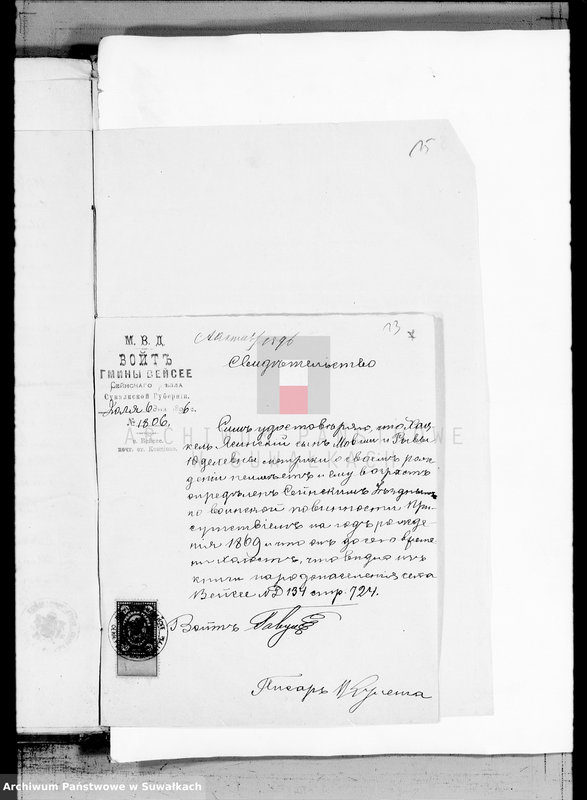 15
13
1896
М. В. Д.
ВОЙТЪ
ГМИНЫ ВЕЙСЕЕ
СЕЙНСКАГО УѢЗДА
Сувалкской Губерніи.
Юля 6 дня 1896 г.
№ 1806.
в. Вейсее.
Свидѣтельство
Симъ удостовѣряю, что Хац
кель Ясинскій сынъ Мовши и Рывы
Юделевны метрики о своемъ рож
деніи неимѣетъ и ему возрастъ
опредѣленъ Сейнскимъ Уѣзднымъ
по воинской повинности При-
сутствіемъ на годъ рожде
нія 1869 и что онъ до сего време
ни холостъ, что видно изъ
книги народонаселенія села
Вейсее № Д 134 стр. 724.
Войтъ
Писарь
ARCHIWUM PAŃSTWOWE
W SUWAŁKACH
Archiwum Państwowe w Suwałkach